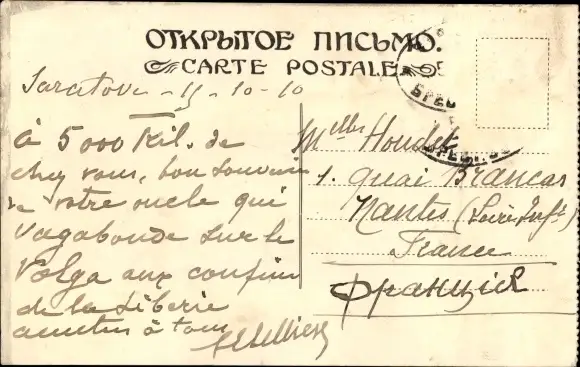 ОТКРЫТОЕ ПИСЬМО.
CARTE POSTALE
Saratow - 15 - 10 - 10
à 5000 Kil. de
chez vous, bon souvenir
de votre oncle qui
vagabonde sur le
Volga aux confins
de la Siberie
amities à tous
Melles Houdet
1. quai Brancas
Nantes (Loire Infre)
France
Франція